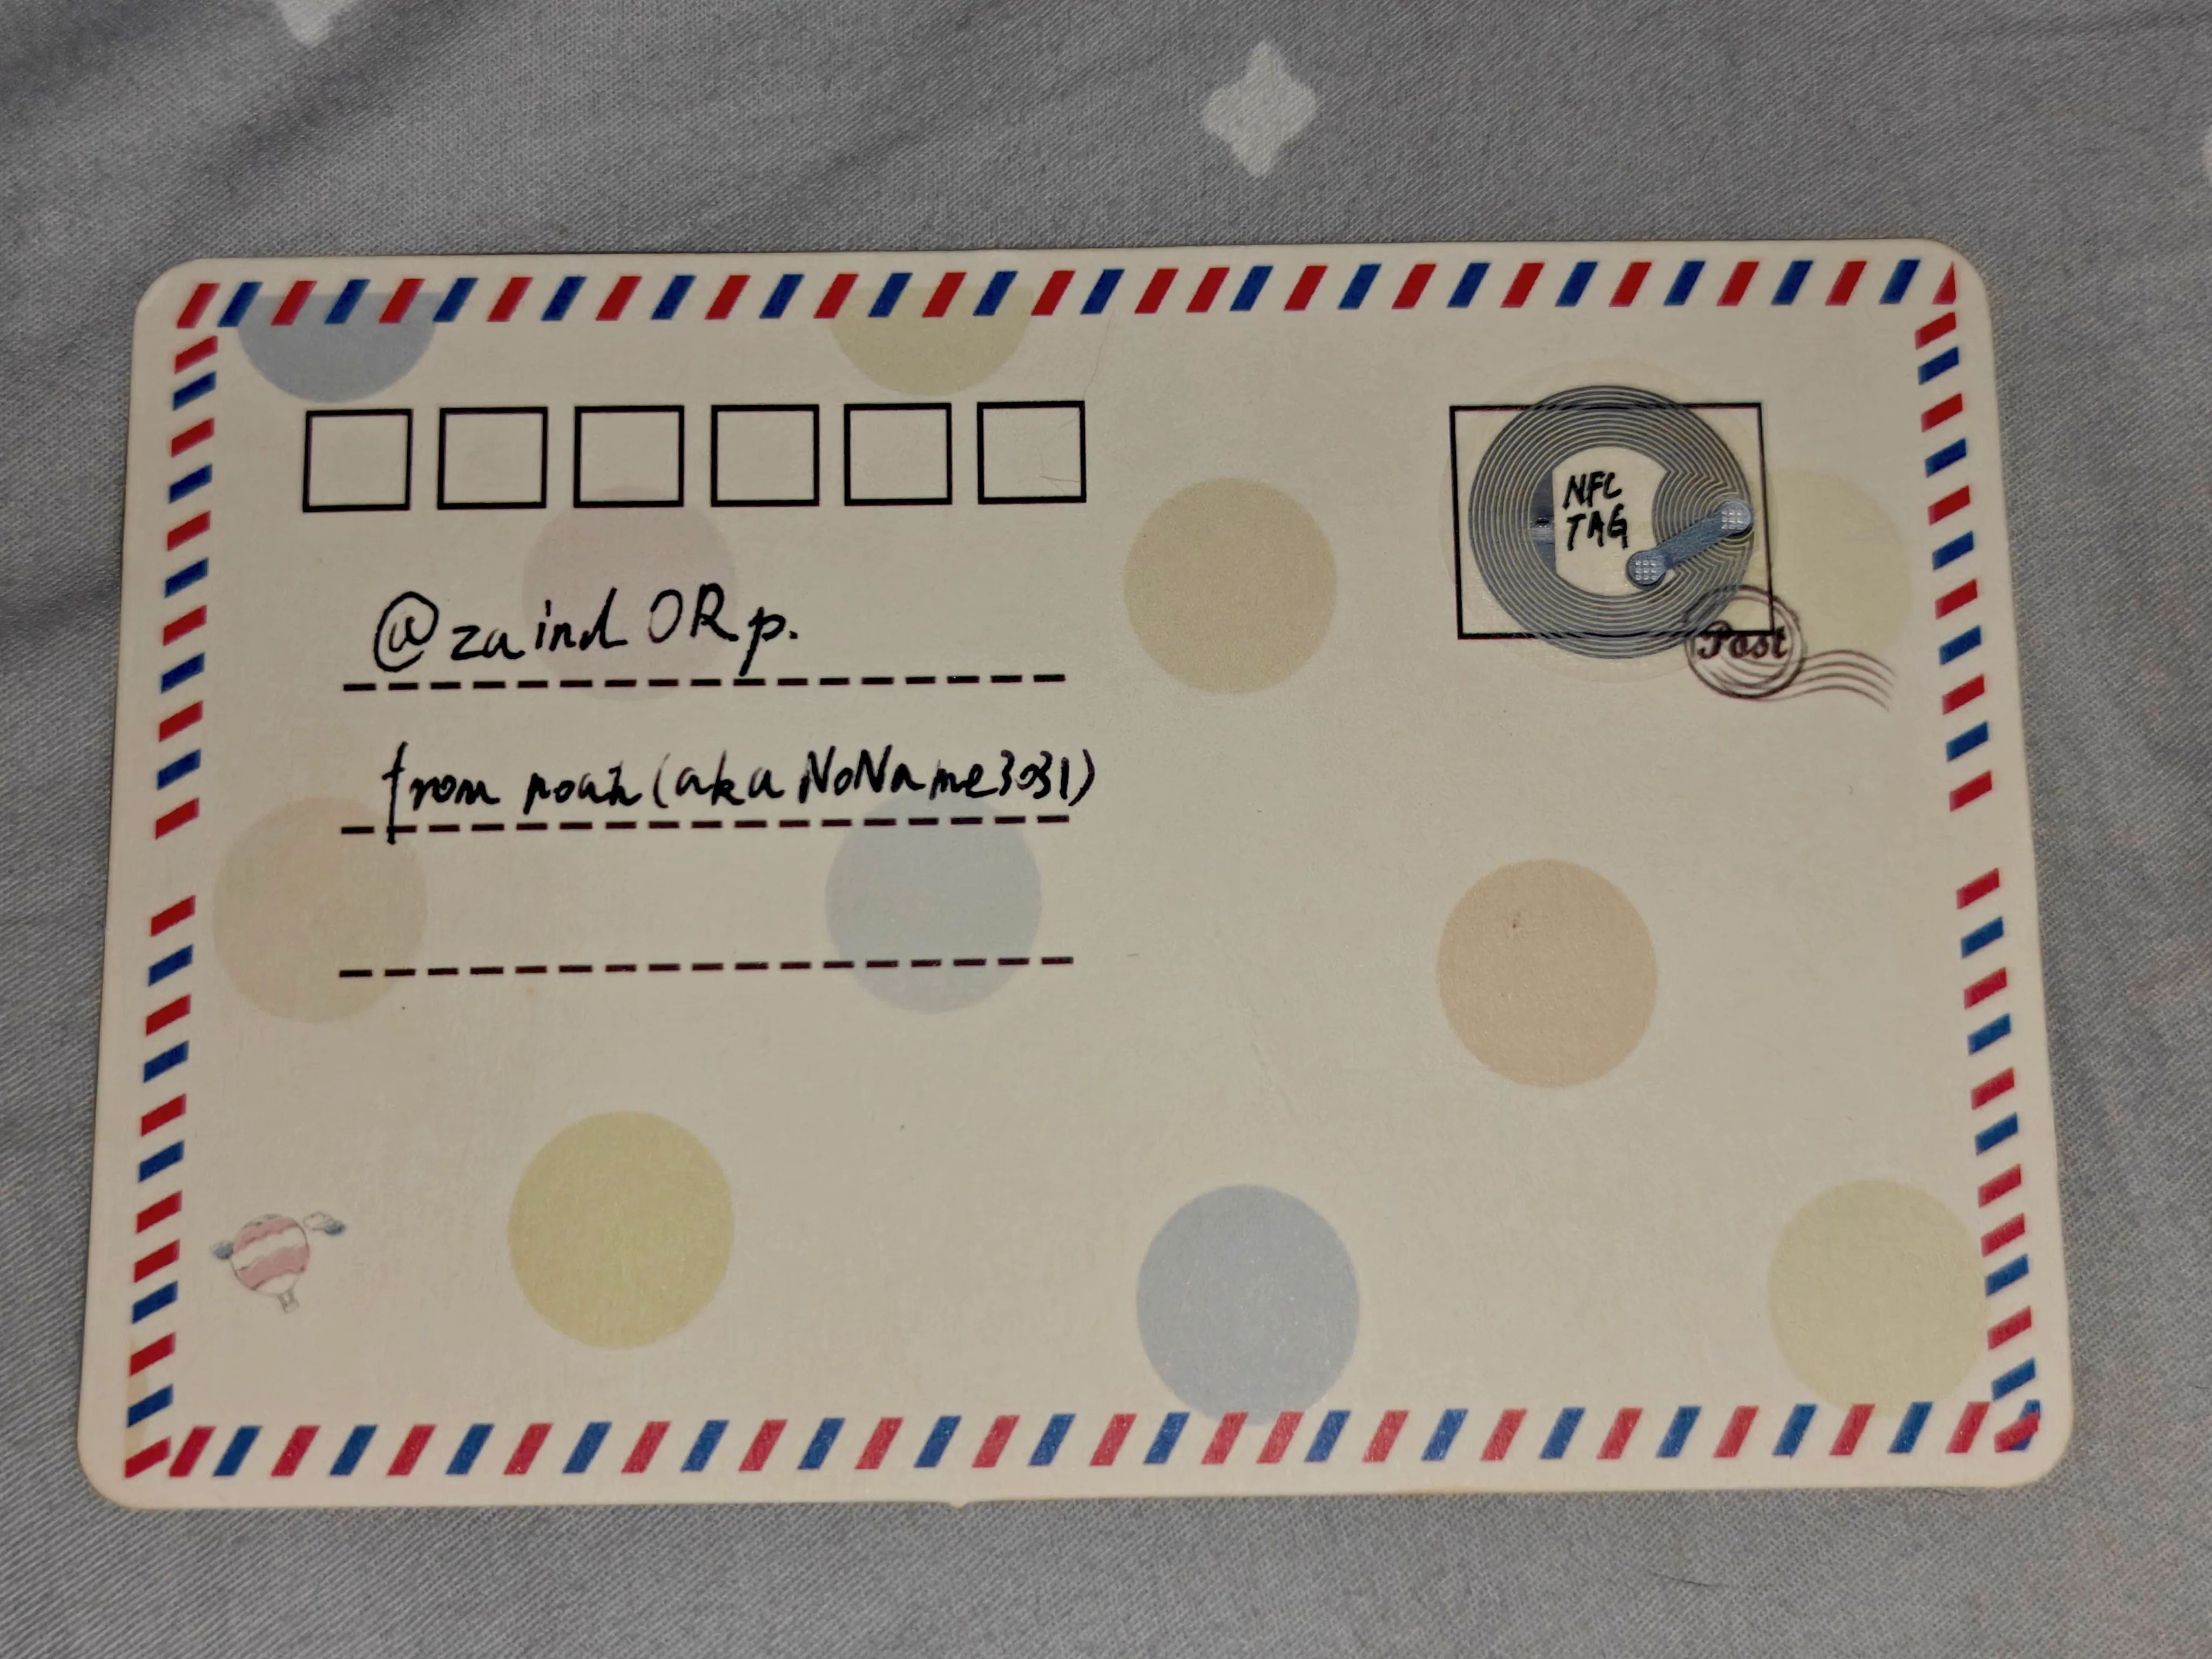 NFC
TAG
Post
@zaindORp.
from noah (aka NoName3031)